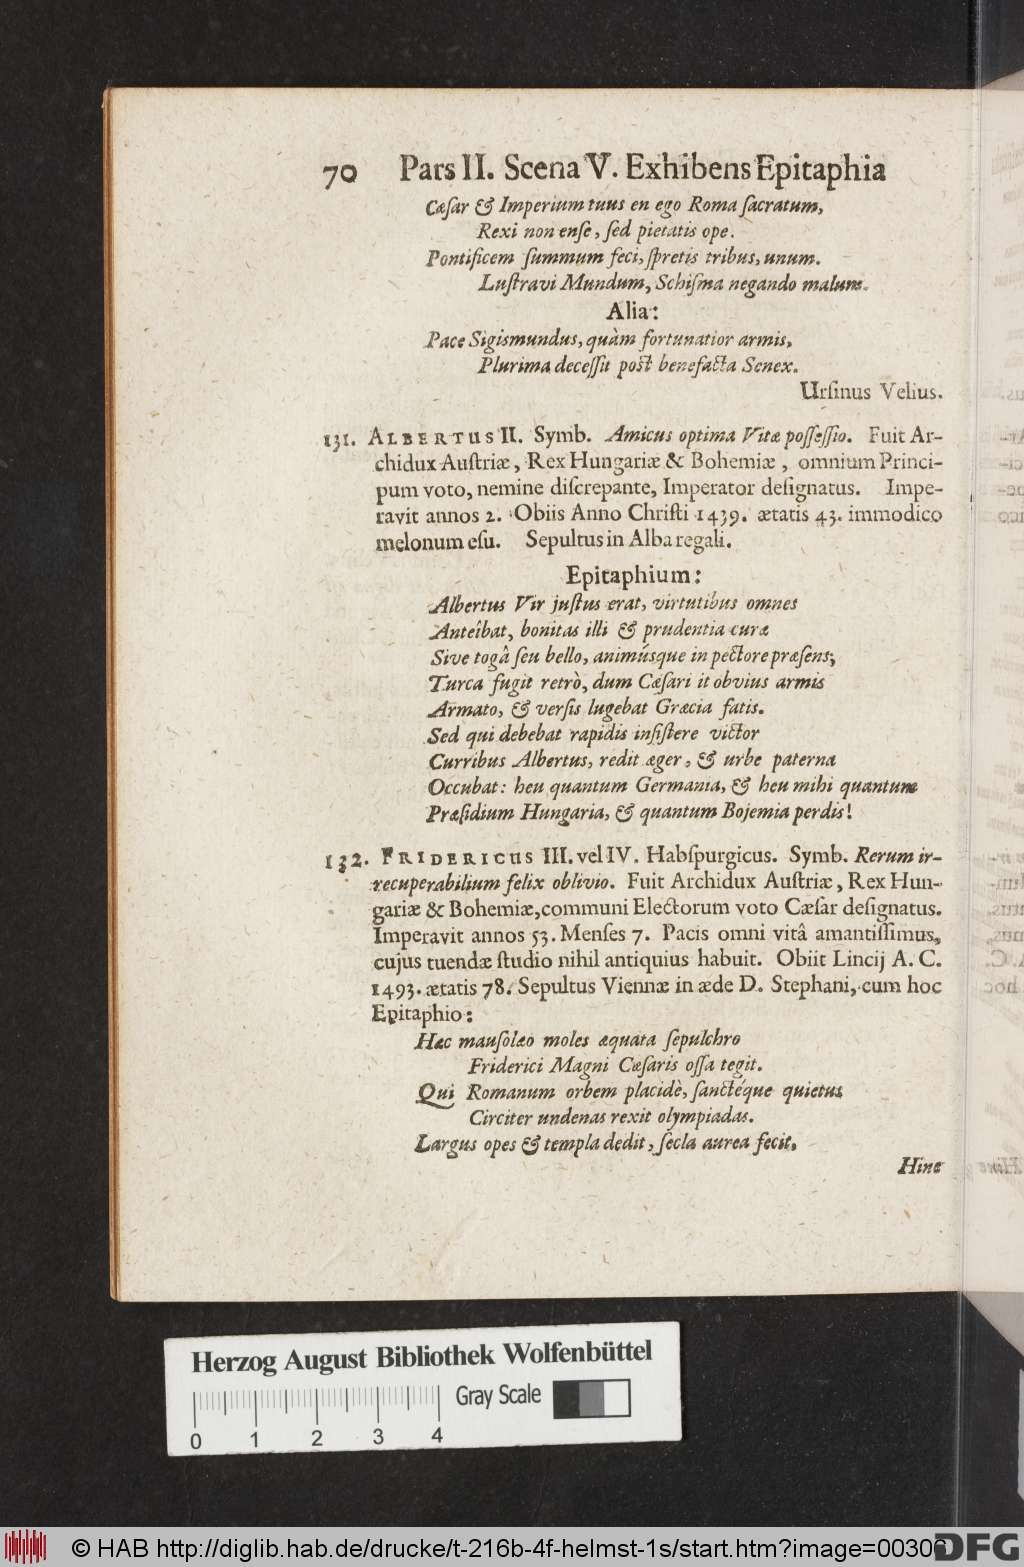 70 Pars II. Scena V. Exhibens Epitaphia
Cæſar & Imperium tuus en ego Roma ſacratum,
Rexi non enſe, ſed pietatis ope.
Pontificem ſummum feci, ſpretis tribus, unum.
Luſtravi Mundum, Schiſma negando malum.
Alia:
Pace Sigismundus, quàm fortunatior armis,
Plurima deceſſit poſt benefacta Senex.
Urſinus Velius.
131. ALBERTUS II. Symb. Amicus optima Vitæ poſſeſſio. Fuit Ar-
chidux Auſtriæ, Rex Hungariæ & Bohemiæ, omnium Princi-
pum voto, nemine diſcrepante, Imperator deſignatus. Impe-
ravit annos 2. Obiis Anno Chriſti 1439. ætatis 43. immodico
melonum eſu. Sepultus in Alba regali.
Epitaphium:
Albertus Vir juſtus erat, virtutibus omnes
Anteîbat, bonitas illi & prudentia curæ
Sive togâ ſeu bello, animúsque in pectore præſens;
Turca fugit retrò, dum Cæſari it obvius armis
Armato, & verſis lugebat Græcia fatis.
Sed qui debebat rapidis inſiſtere victor
Curribus Albertus, redit æger, & urbe paterna
Occubat: heu quantum Germania, & heu mihi quantum
Præſidium Hungaria, & quantum Bojemia perdis!
132. FRIDERICUS III. vel IV. Habſpurgicus. Symb. Rerum ir-
recuperabilium felix oblivio. Fuit Archidux Auſtriæ, Rex Hun-
gariæ & Bohemiæ, communi Electorum voto Cæſar deſignatus.
Imperavit annos 53. Menſes 7. Pacis omni vitâ amantiſſimus,
cujus tuendæ ſtudio nihil antiquius habuit. Obiit Lincij A. C.
1493. ætatis 78. Sepultus Viennæ in æde D. Stephani, cum hoc
Epitaphio:
Hac mauſolæo moles æquata ſepulchro
Friderici Magni Cæſaris oſſa tegit.
Qui Romanum orbem placidè, ſanctéque quietus
Circiter undenas rexit olympiadas.
Largus opes & templa dedit, ſecla aurea fecit,
Hinc
Herzog August Bibliothek Wolfenbüttel
Gray Scale
0 1 2 3 4
© HAB http://diglib.hab.de/drucke/t-216b-4f-helmst-1s/start.htm?image=00306
DFG